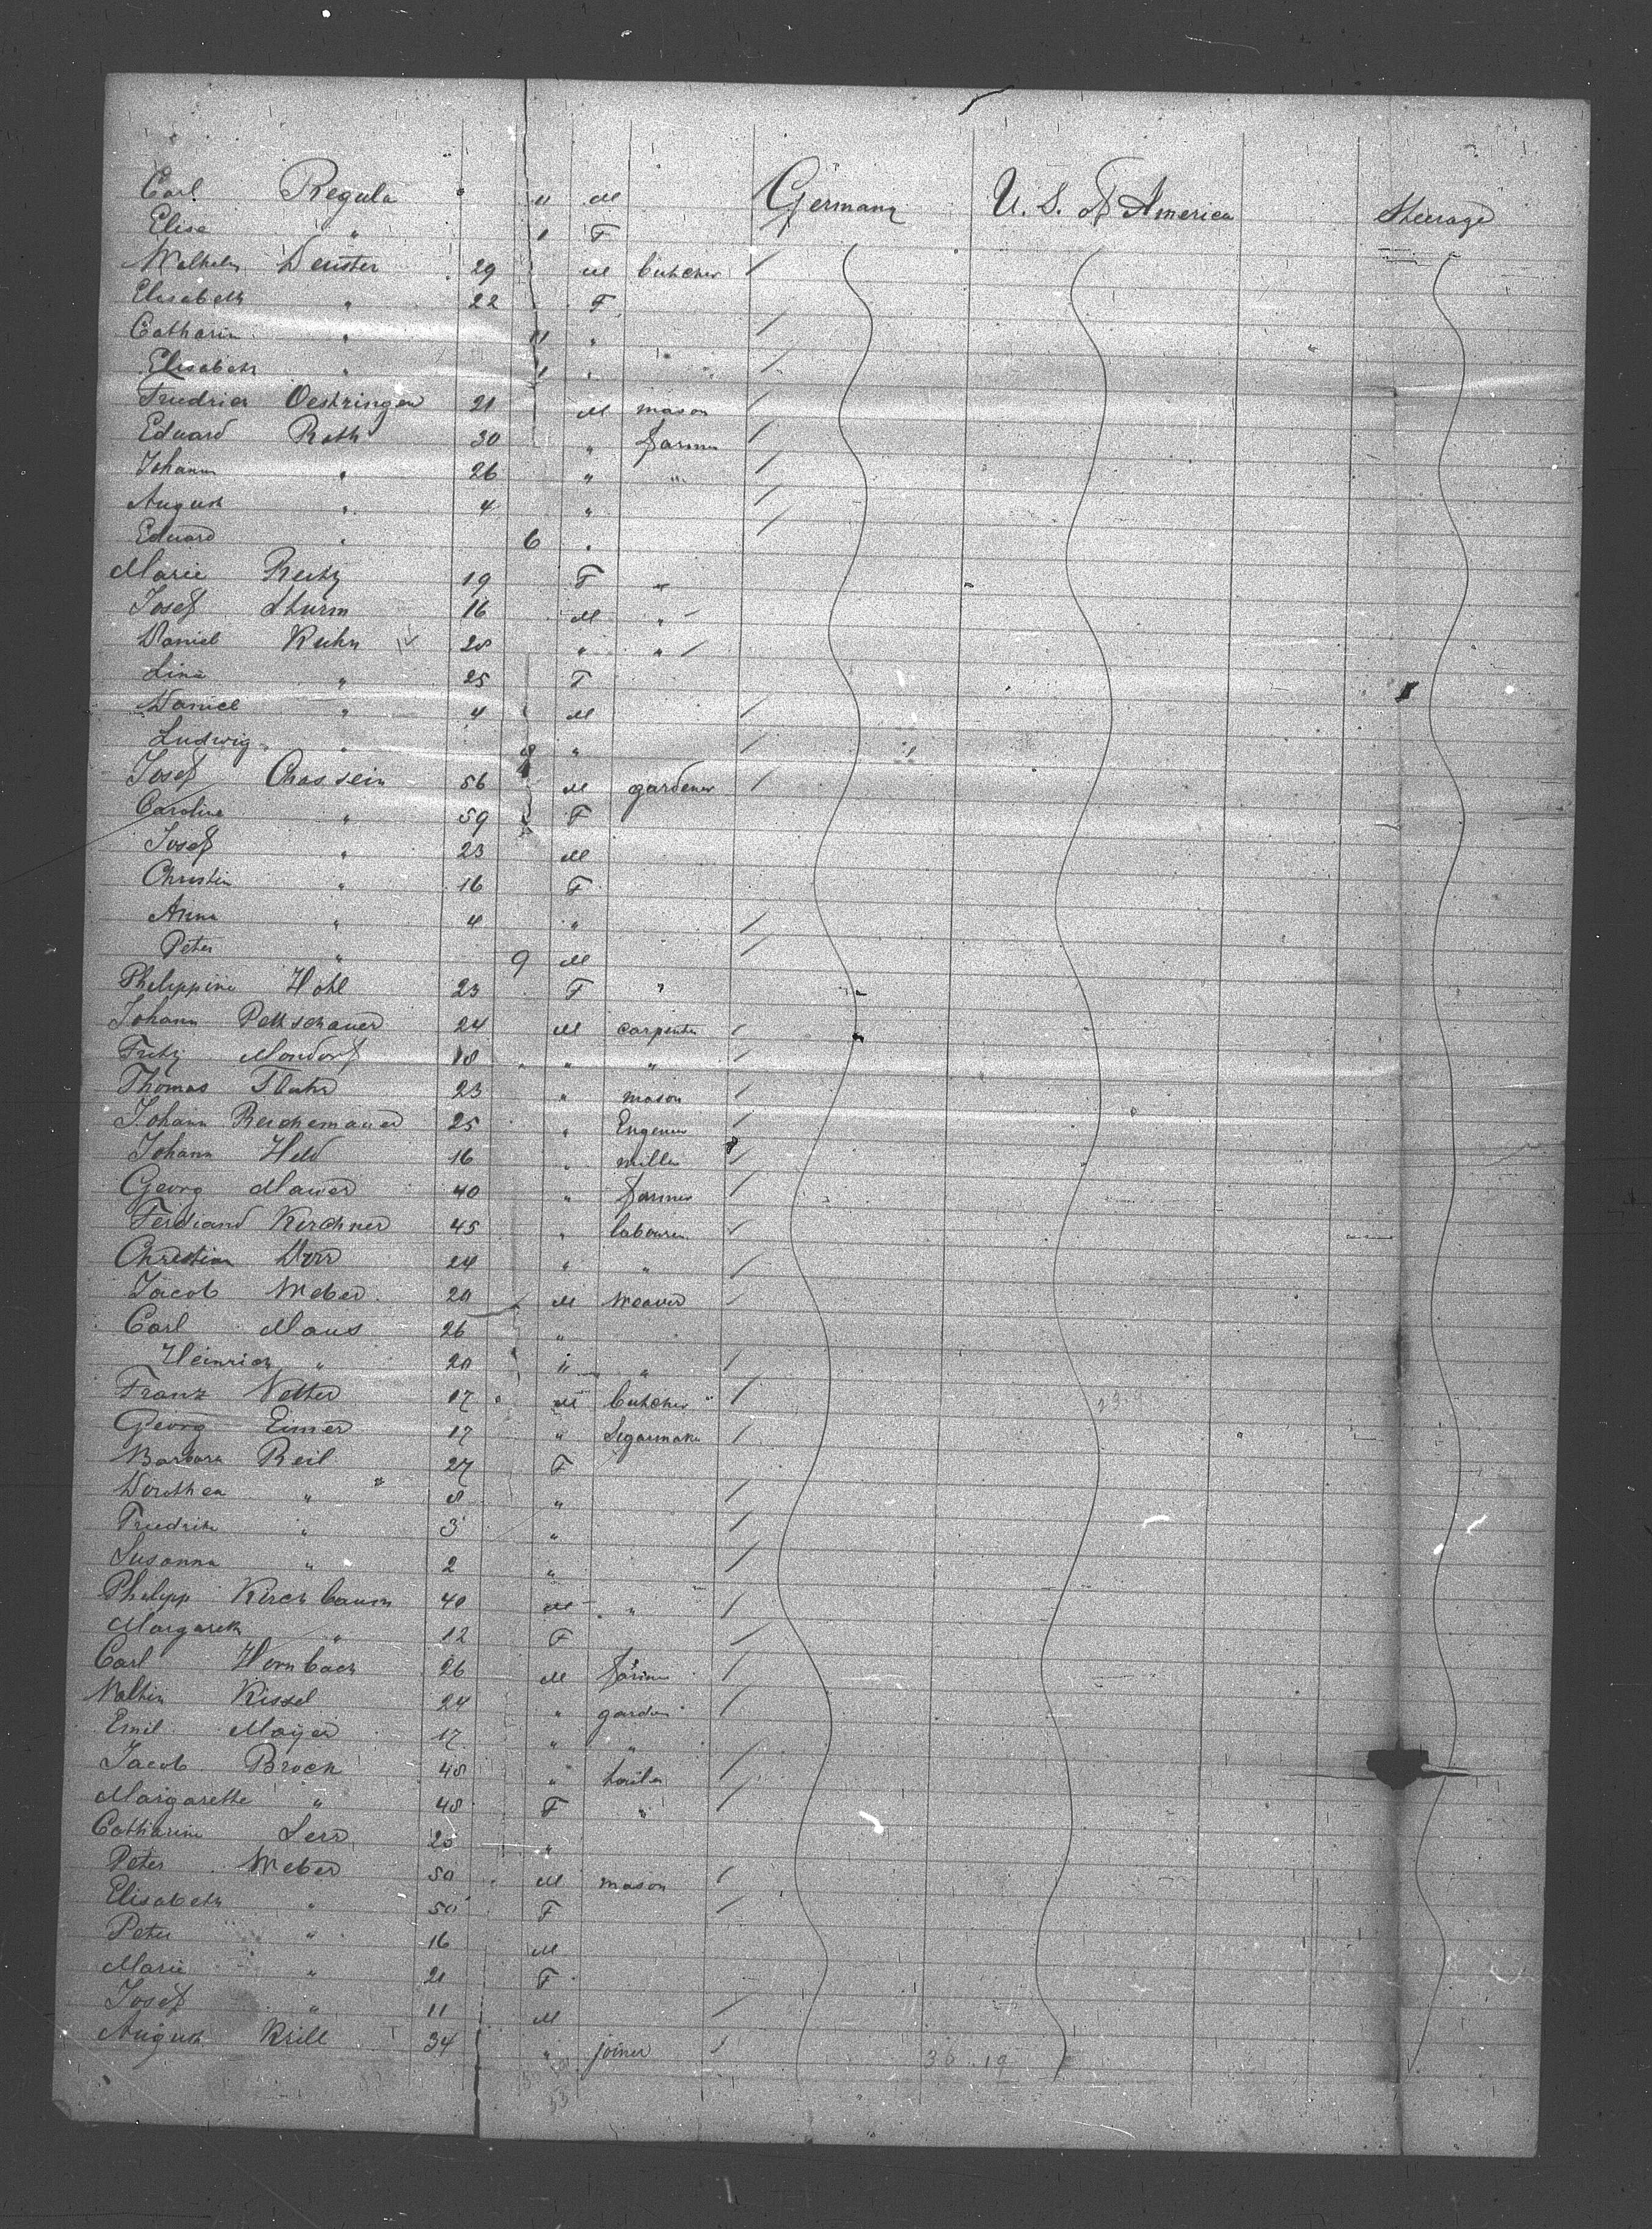 Carl Regula " 11 M Germany U. S. of America Steerage
Elise " 1 F
Wilhelm Deuster 29 M butcher
Elisabeth " 22 F
Catharin " 11 "
Elisabeth " 1 "
Friedrich Oestringer 21 M mason
Eduard Roth 30 " farmer
Johann " 26 " "
August " 4 "
Eduard " 6 "
Marie 19 F "
Josef Sturm 16 M "
Daniel Kuhn 28 " "
Lina " 25 F
Daniel " 4 M
Ludwig " 8 "
Josef Chassein 56 M gardener
Caroline " 59 F
Josef " 23 M
Christin " 16 F
Anna " 4 "
Peter " 9 M
Philippine Hohl 23 F "
Johann Petschauer 24 M carpenter
Fritz Mondorf 18 " "
Thomas 23 " mason
Johann Reichenauer 25 " Engener
Johann Held 16 " miller
Georg Mauer 40 " farmer
Ferdinand Kirchner 45 " labourer
Christian Dorr 24 " "
Jacob Weber 20 M Weaver
Carl Maus 26 "
Heinrich " 20 " "
Franz Vetter 17 M butcher
Georg Eimer 17 " Segarmaker
Barbara Reil 27 F
Dorothea " 8 "
Friedrike " 3 "
Susanna " 2 "
Philipp Kirchbaum 40 M "
Margareth " 12 F
Carl Hornbach 26 M farmer
Kissel 24 " garden
Emil Mayer 17 " "
Jacob Brock 48 " tailer
Margarethe " 48 F "
Catharine 20 "
Peter Weber 50 M mason
Elisabeth " 50 F
Peter " 16 M
Marie " 21 F
Josef " 11 M
August Krill 34 " joiner
36 19
53